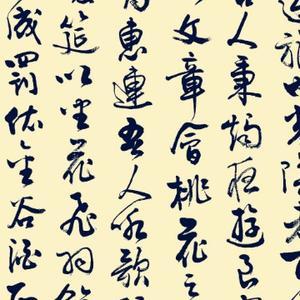 人秉燭夜遊良
文章會桃花之
惠連吾人詠歌
筵以坐花飛羽
成罰依金谷酒